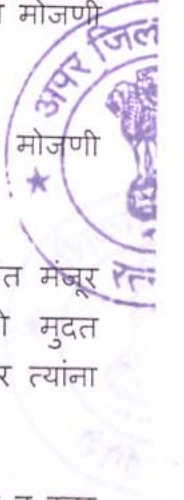 मोजणी
अपर जिल
मोजणी
त मंजूर
मुदत
र त्यांना